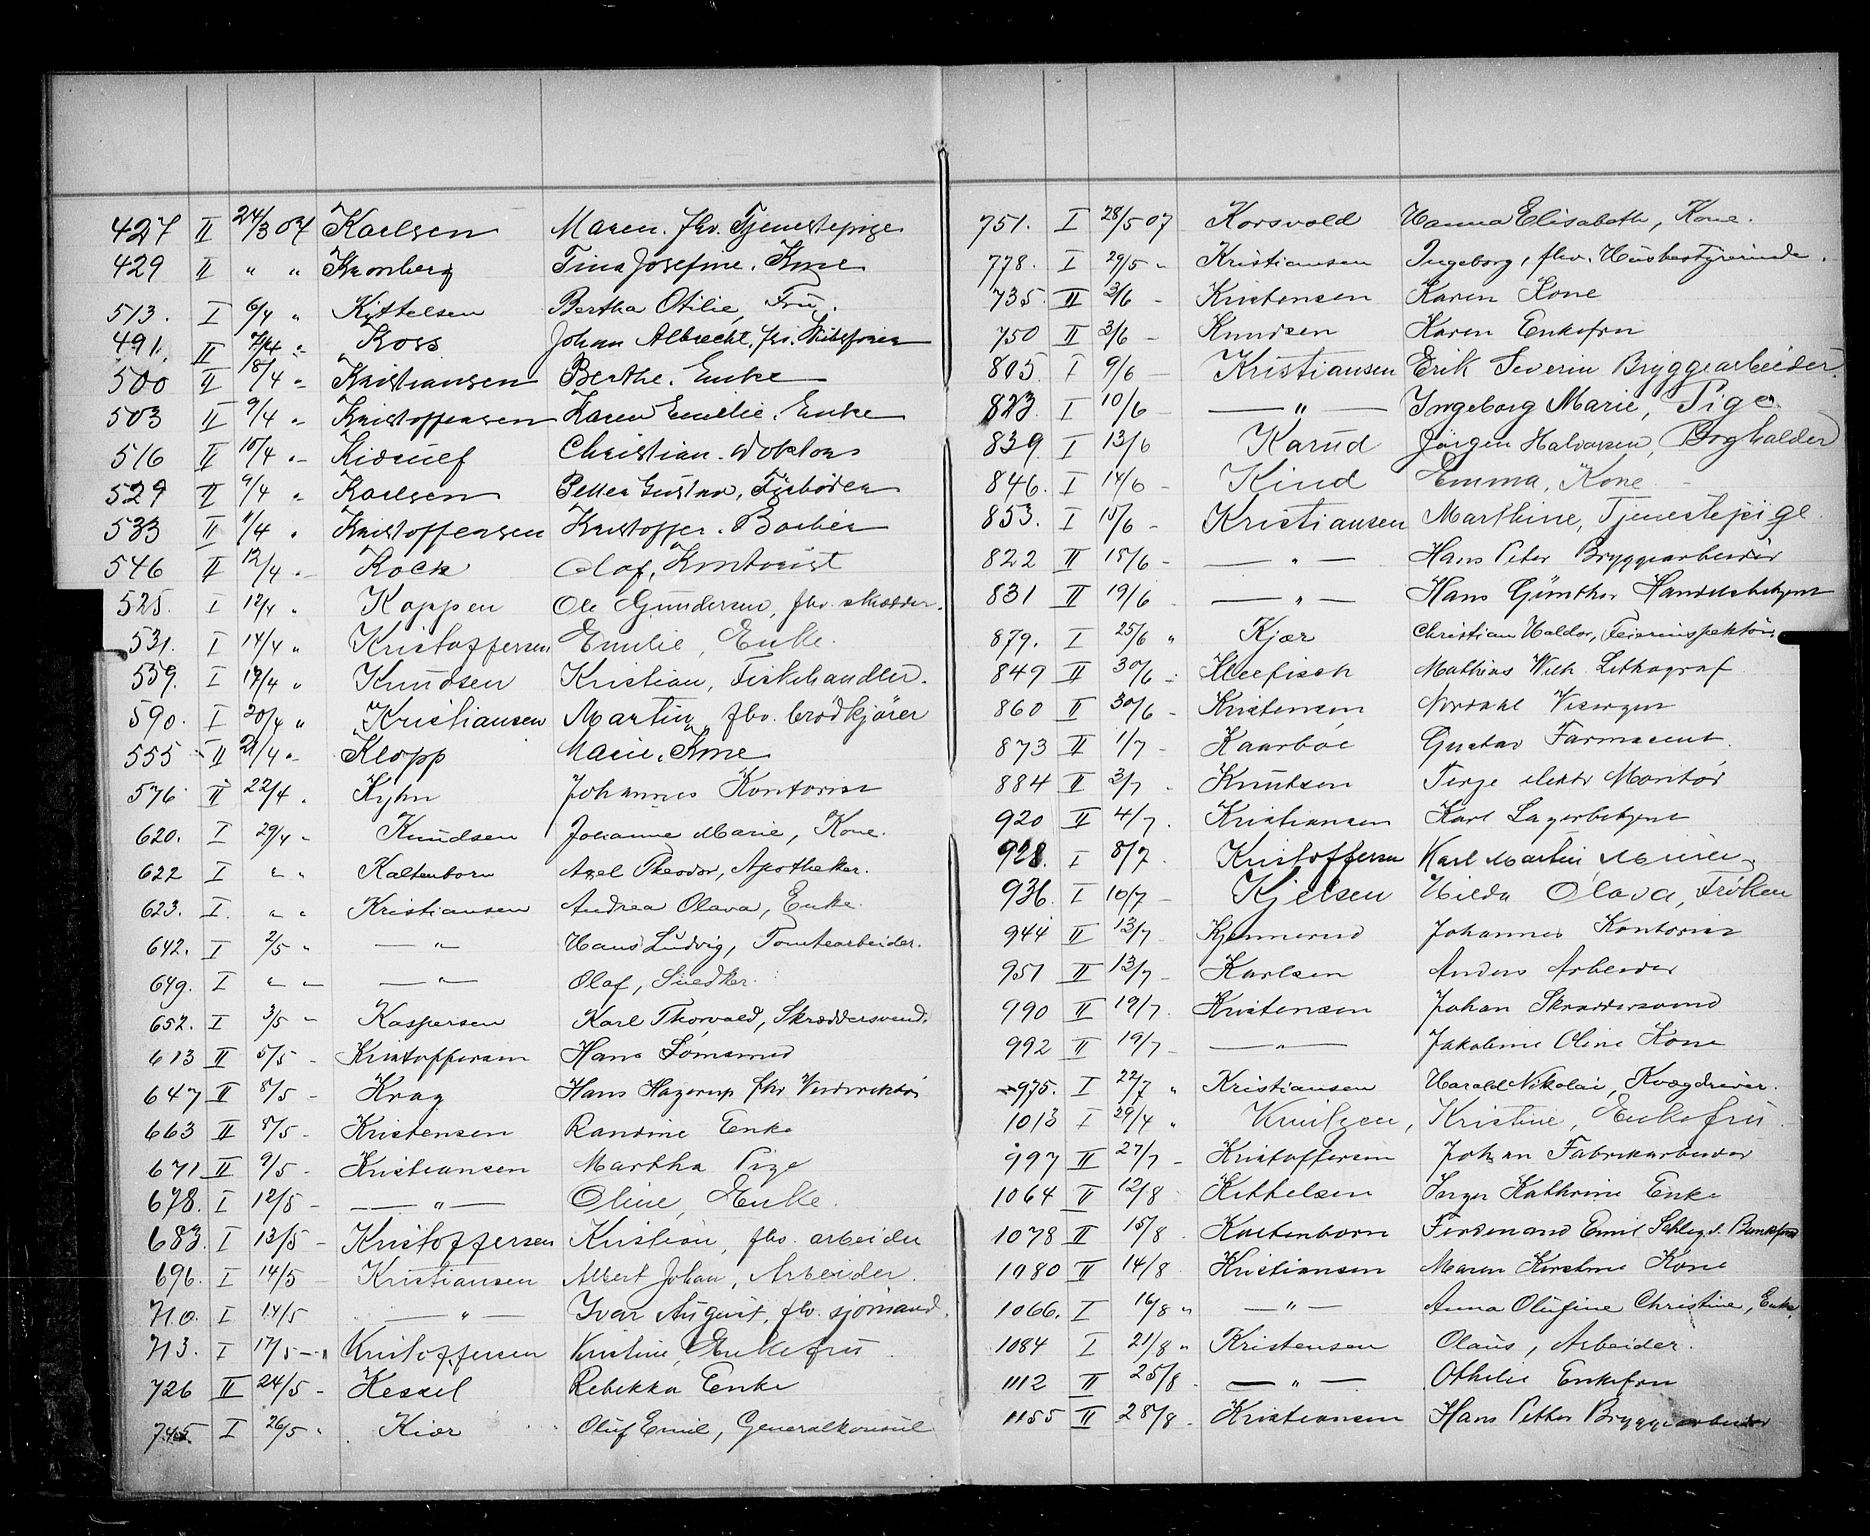 427 II 24/3 07 Karlsen Maren. fhv. Tjenestepige
429 II " " Kronberg Tina Josefine. Kone
513. I 6/4 " Kittelsen Bertha Otilie, Fru.
491. II 7/4 " Koss Johan Albrecht, fhv.
500 II 8/4 " Kristiansen Berthe. Enke
503 II 9/4 " Kristoffersen Karen Emilie. Enke
516 II 10/4 " Kierulf Christian. Doktor
529 II 9/4 " Karlsen Petter Gustav, Fyrbøder
533 II 11/4 " Kristoffersen Kristoffer. Barber
546 II 12/4 " Kock Olaf, Kontorist
525. I 12/4 " Koppen Ole Gundersen, fhv. skredder.
531. I 14/4 " Kristoffersen Emilie, Enke
559. I 17/4 " Knudsen Kristian, Fiskehandler.
590. I 20/4 " Kristiansen Martin, fhv. brødkjører
555 II 21/4 " Klopp Marie. Kone
576 II 22/4 " Kyhn Johannes Kontorist
620. I 29/4 " Knudsen Johanne Marie, Kone.
622 I " " Kaltenborn Axel Theodor, Apotheker.
623. I " " Kristiansen Andrea Olava, Enke.
642. I 2/5 " — " — Hans Ludvig, Tomtearbeider.
649. I " " — " — Olaf, Snedker.
652. I 3/5 " Kaspersen Karl Thorvald, Skræddersvend.
613 II 5/5 - Kristoffersen Hans Lømsmed
647 II 8/5 - Krag Hans Hagerup fhv Veidirektør
663 II 8/5 - Kristensen Randine Enke
671 II 9/5 - Kristiansen Martha Pige
678. I 12/5 - — " — Oline, Enke.
683. I 13/5 - Kristoffersen Kristian, fhv. arbeider
696. I 14/5 Kristiansen Albert Johan, Arbeider.
710. I 14/5 — " — Ivar August, fhv. sjømand.
713. I 17/5 - " Kristoffersen Kristine, Enkefru
726 II 24/5 - Kessel Rebekka Enke
745 I 26/5 " Kiær Oluf Emil, Generalkonsul
751. I 28/5 07 Korsvold Hanna Elisabeth, Kone.
778. I 29/5 " Kristiansen Ingeborg, fhv. Husbestyrerinde.
735. II 3/6 - Kristensen Karen Kone
750 II 3/6 - Knudsen Karen Enkefru
805. I 9/6 - Kristiansen Erik Severin Bryggearbeider.
823. I 10/6 — " — Ingeborg Marie, Pige.
839. I 13/6 Karud Jørgen Halvorsen,
846. I 14/6 - Kind Emma, Kone
853. I 15/6 - Kristiansen Marthine, Tjenestepige
822 II 15/6 - — " — Hans Peter Bryggearbeider
831 II 19/6 - — " — Hans Günther Handelsbetjent
879. I 25/6 " Kjær Christian Haldor, Feierinspektør
849 II 30/6 - Kleefisch Mathias Wilh. Lithograf
860 II 30/6 - Kristensen Nordahl Visergut
873 II 1/7 - Kaarbøe Gustav Farmaceut.
884 II 3/7 Knutsen Terje elektr Montør
920 II 4/7. Kristiansen Karl Lagerbetjent
928. I 8/7. Kristoffersen Karl Martin Murer.
936. I 10/7 - Kjelsen Hilda Olava, Frøken
944 II 13/7 - Kjennerud Johannes Kontorist
951 II 13/7 - Karlsen Anders Arbeider
990 II 19/7. Kristensen Johan Skræddersvend
992 II 19/7 - — " — Jakobine Oline Kone
975. I 22/7 " Kristiansen Harald Nikolai, Kvægdriver.
1013 I 29/4 " Knutzen, Kristine, Enkefru.
997 II 27/7 - Kristoffersen Johan Fabrikarbeider
1064 II 12/8 Kittelsen Inger Kathrine Enke
1078 II 15/8 Kaltenborn Ferdinand Emil
1080 II 14/8 Kristiansen Maren Kirstine Kone
1066. I 16/8 " — " — Anna Olufine Christine, Enke.
1084 I 21/8 " Kristensen Olaus, Arbeider.
1112 II 25/8 — " — Othilie Enkefru
1155 II 28/8 - Kristiansen Hans Petter Bryggearbeider